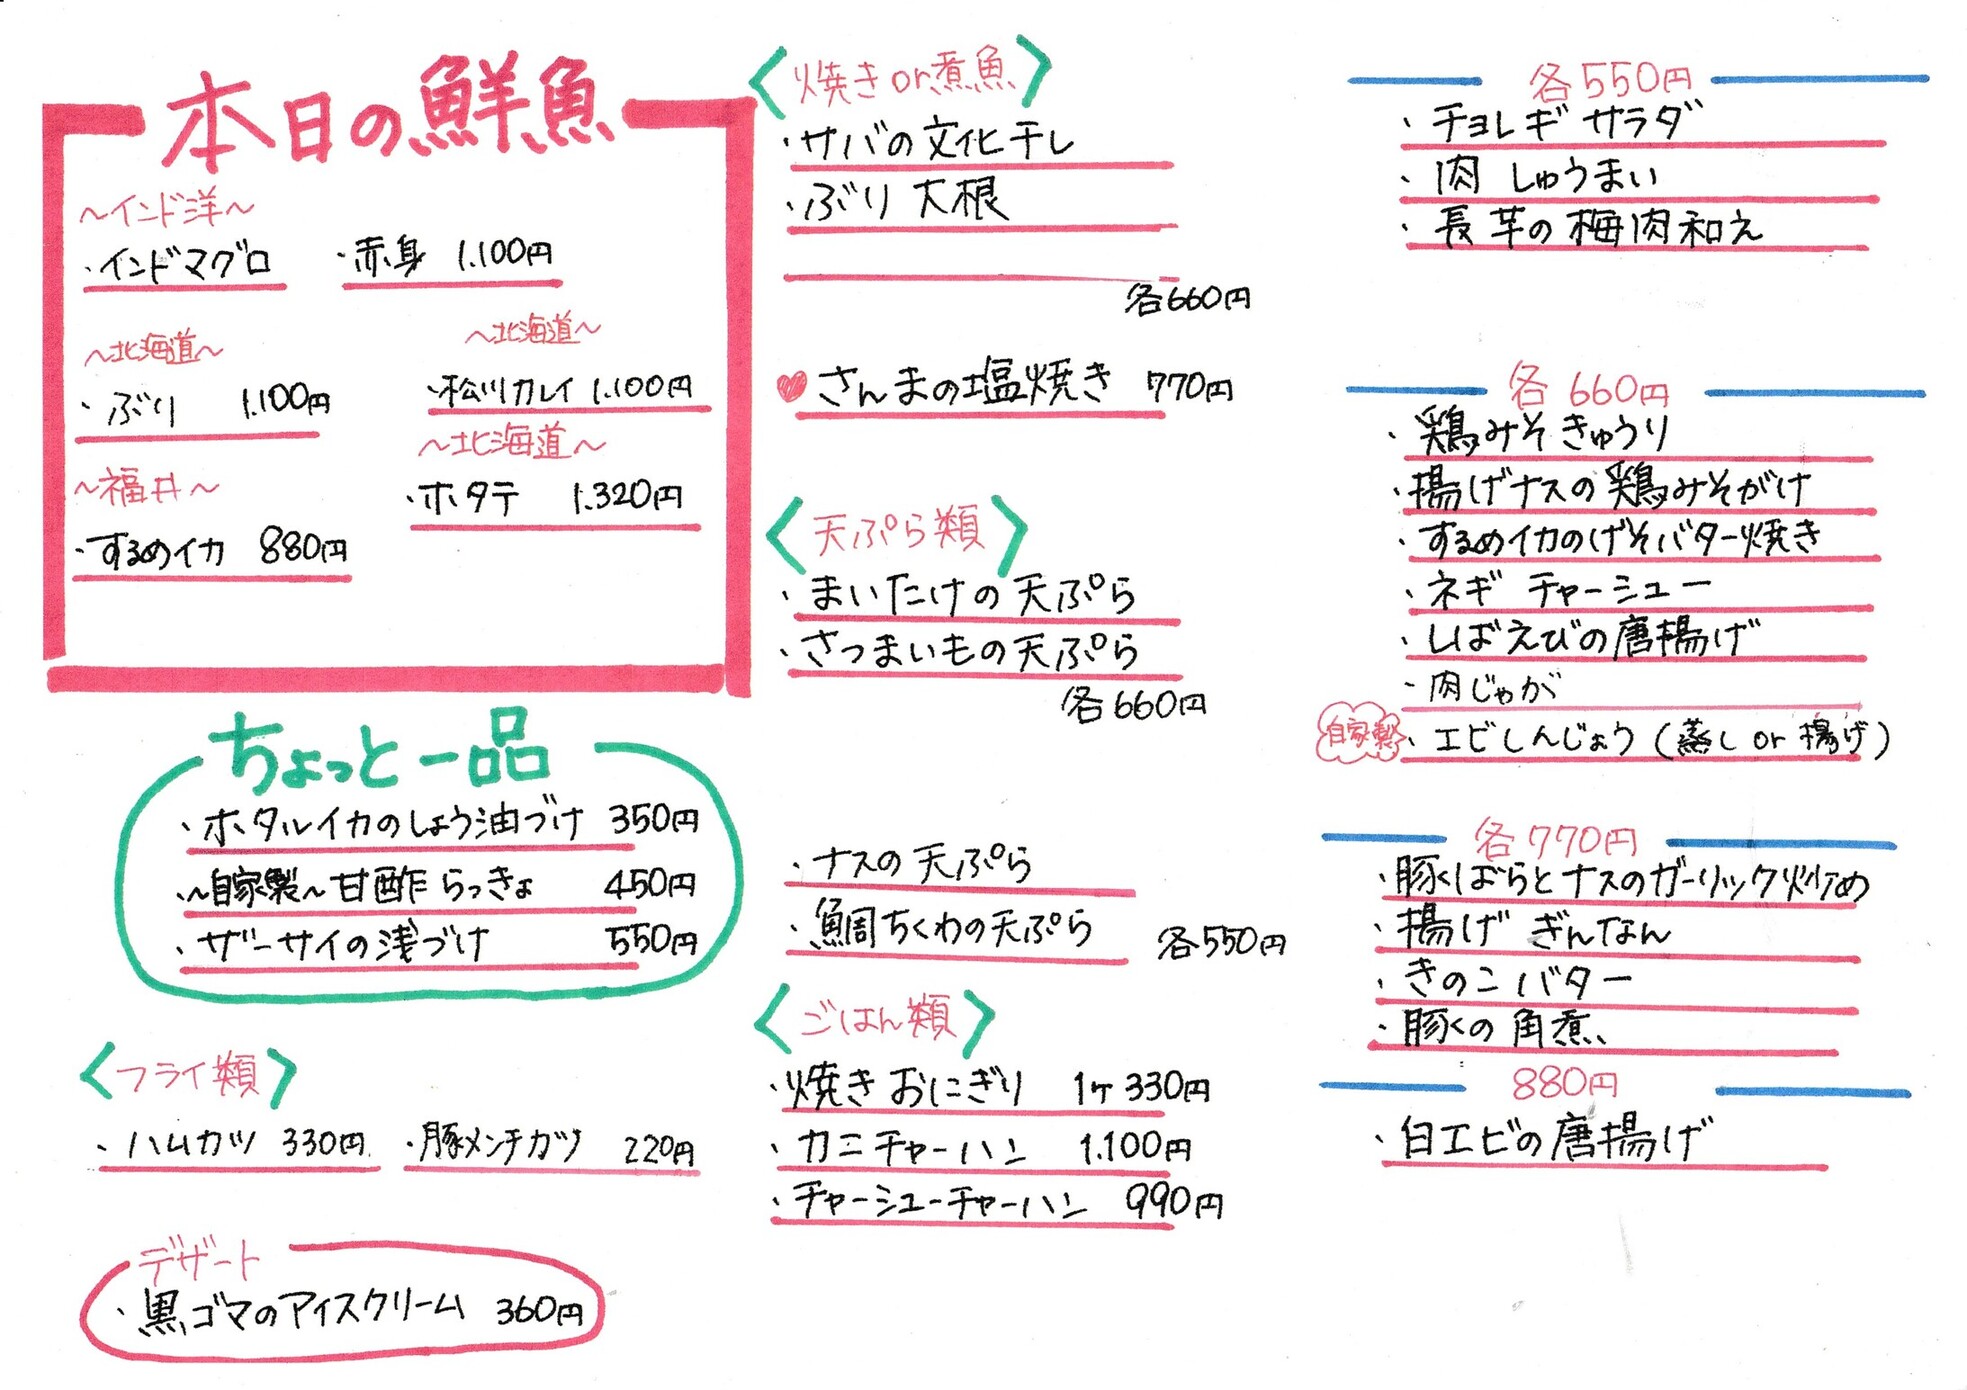 本日の鮮魚
～インド洋～
・インドマグロ ・赤身 1.100円
～北海道～
・ぶり 1.100円
～北海道～
・松川カレイ 1.100円
～福井～
・するめイカ 880円
～北海道～
・ホタテ 1.320円
ちょっと一品
・ホタルイカのしょう油づけ 350円
・～自家製～甘酢らっきょ 450円
・ザーサイの浅づけ 550円
〈フライ類〉
・ハムカツ 330円 ・豚メンチカツ 220円
デザート
・黒ゴマのアイスクリーム 360円
〈焼きor煮魚〉
・サバの文化干し
・ぶり大根
各660円
♥さんまの塩焼き 770円
〈天ぷら類〉
・まいたけの天ぷら
・さつまいもの天ぷら
各660円
・ナスの天ぷら
・鯛ちくわの天ぷら 各550円
〈ごはん類〉
・焼きおにぎり 1ヶ330円
・カニチャーハン 1.100円
・チャーシューチャーハン 990円
各550円
・チョレギサラダ
・肉しゅうまい
・長芋の梅肉和え
各660円
・鶏みそきゅうり
・揚げナスの鶏みそがけ
・するめイカのげそバター焼き
・ネギチャーシュー
・しばえびの唐揚げ
・肉じゃが
自家製・エビしんじょう(蒸しor揚げ)
各770円
・豚ばらとナスのガーリック炒め
・揚げぎんなん
・きのこバター
・豚の角煮
880円
・白エビの唐揚げ